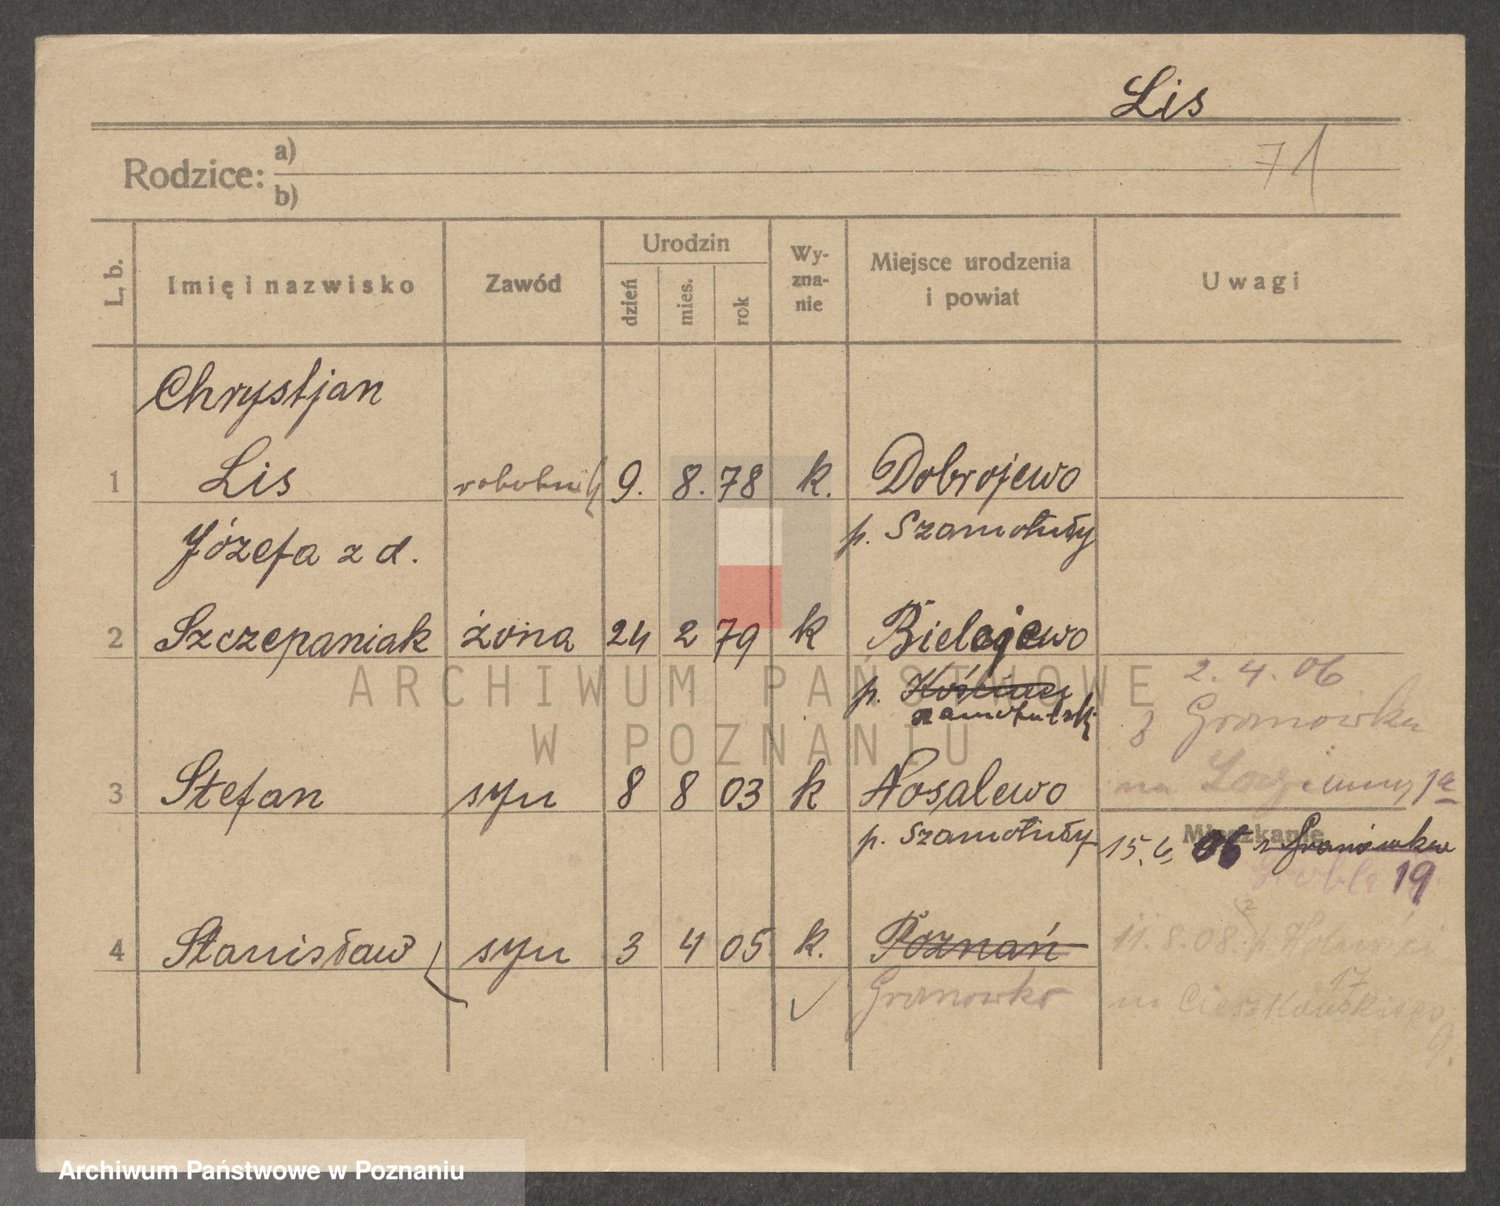 Lis
71
Rodzice: a)
b)
L. b. Imię i nazwisko Zawód Urodzin dzień mies. rok Wy-zna-nie Miejsce urodzenia i powiat Uwagi
Chrystjan
1 Lis robotnik 9. 8. 78 k. Dobrojewo
Józefa z d. p. Szamotuły
2 Szczepaniak żona 24 2 79 k Bielejewo
ARCHIWUM PAŃSTWOWE
p. 2. 4. 06
z Granowka
W POZNANIU
3 Stefan syn 8 8 03 k Nosalewo na
Mieszkanie
p. Szamotuły 15. 6. 06 z Granówka
19
4 Stanisław syn 3 4 05 k. Poznań 11. 8. 08
Granowko
17
na Cieszkowskiego
9.
Archiwum Państwowe w Poznaniu